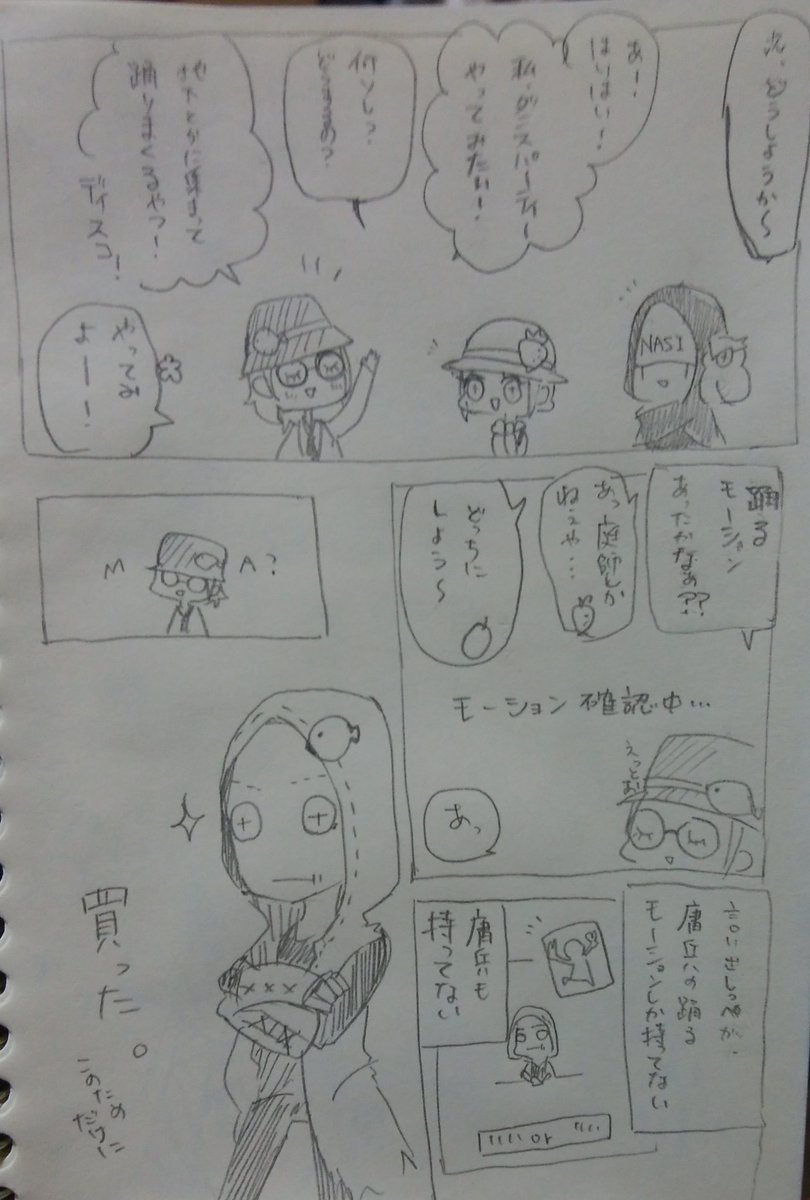 次、どうしようか〜
あー、
はいはい!
私、ダンスパーティー
やってみたい!
何ソレっ?
踊りまくるやつ!
ディスコ!
やってみ
よーー!
NASI
踊る
モーション
あったかなぁ??
あっ庭師しか
ねぇや…
どっちに
しよう〜
モーション確認中…
えっとぉ
あっ
M A?
言い出しっぺが、
傭兵の踊る
モーションしか持ってない
傭兵も
持ってない
買った。
このため
だけに